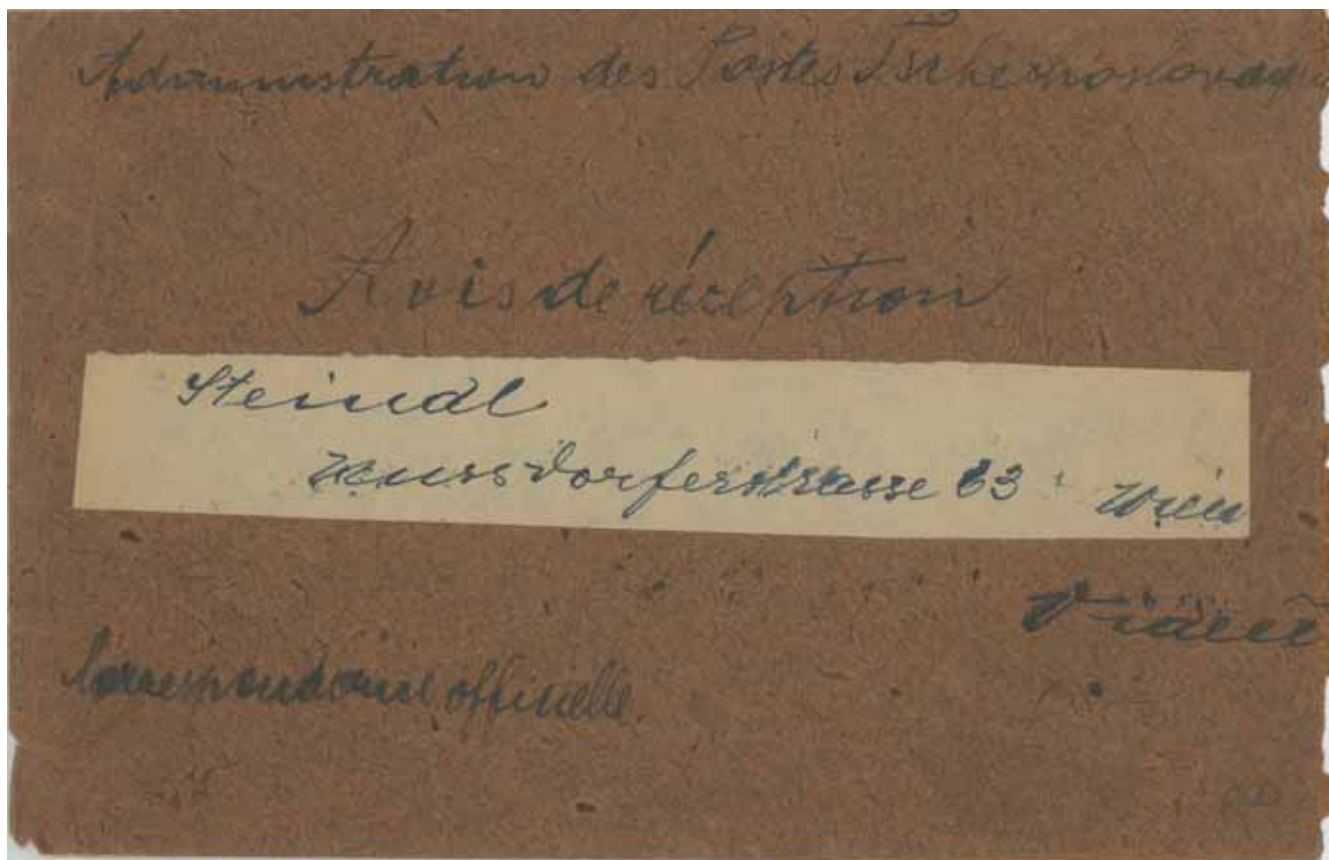 Administration des Postes Tschechoslovaq
Avis de réception
Steindl
Nussdorferstrasse 63 Wien
Vídeň
Correspondance officielle.